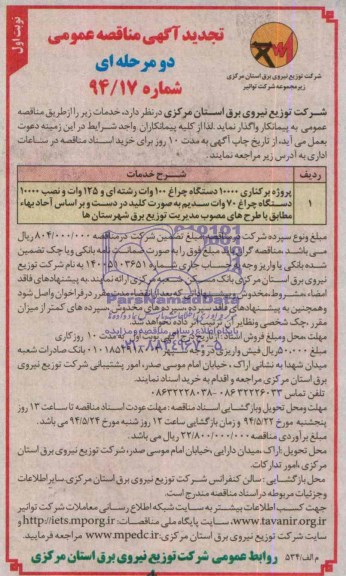 نوبت اول
تجدید آگهی مناقصه عمومی
دو مرحله ای
شماره ۹۴/۱۷
شرکت توزیع نیروی برق استان مرکزی
زیرمجموعه شرکت توانیر
شرکت توزیع نیروی برق استان مرکزی درنظر دارد، خدمات زیر را ازطریق مناقصه
عمومی به پیمانکار واگذار نماید. لذا از کلیه پیمانکاران واجد شرایط در این زمینه دعوت
بعمل می آید، از تاریخ چاپ آگهی به مدت ۱۰ روز برای خرید اسناد مناقصه در ساعات
اداری به آدرس زیر مراجعه نمایند.
ردیف
شرح خدمات
۱
پروژه برکناری ۱۰۰۰۰ دستگاه چراغ ۱۰۰ وات رشته ای و ۱۲۵ وات و نصب ۱۰۰۰۰
دستگاه چراغ ۷۰ وات سدیم به صورت کلید در دست و بر اساس آحاد بهاء
مطابق با طرح های مصوب مدیریت توزیع برق شهرستان ها
مبلغ ونوع سپرده شرکت در مناقصه: مبلغ تضمین شرکت در مناقصه ۸۰۴/۰۰۰/۰۰۰ ریال
می باشد. مناقصه گران باید مبلغ فوق را به صورت ضمانت نامه بانکی و یا چک تضمین
شده بانکی یا واریز وجه به حساب جاری شماره ۱۴۰۰۵۱۰۳۶۵۱ به نام شرکت توزیع
نیروی برق استان مرکزی بانک مسکن شعبه مرکزی ارائه نمایند. به پیشنهادهای فاقد
امضاء، مشروط، مخدوش و پیشنهاداتی که بعد از انقضاء مدت مقرر در فراخوان واصل شود
و همچنین به پیشنهادهای فاقد سپرده، سپرده های مخدوش، سپرده های کمتر از میزان
مقرر، چک شخصی ونظایر آن ترتیب اثر داده نخواهد شد.
ParsNamadData
پایگاه اطلاع رسانی مناقصه و مزایده
۰۲۱-۸۸۳۴۹۶۷۰-۵
مهلت، محل ومبلغ فروش اسناد: از تاریخ درج آگهی نوبت اول به مدت ۱۰ روز کاری
میدان شهدا به نشانی اراک، خیابان امام موسی صدر، امور پشتیبانی شرکت توزیع نیروی
برق استان مرکزی مراجعه و اقدام به خرید اسناد نمایند.
تلفن تماس ۰۸۶۳۲۲۲۶۰۳۳-۰۸۶۳۲۲۲۸۰۳۸
مهلت ومحل تحویل وبازگشایی اسناد مناقصه: مهلت عودت اسناد مناقصه تا ساعت ۱۳ روز
پنجشنبه مورخ ۹۴/۵/۲۲ و زمان بازگشایی ساعت ۱۲ روز شنبه مورخ ۹۴/۵/۲۴ می باشد.
مبلغ برآوردی مناقصه ۲۲/۸۰۰/۰۰۰/۰۰۰ ریال می باشد.
محل تحویل: اراک، میدان دارایی، خیابان امام موسی صدر، شرکت توزیع نیروی برق استان
مرکزی، امور تدارکات.
محل بازگشایی: سالن کنفرانس شرکت توزیع نیروی برق استان مرکزی. سایر اطلاعات
وجزئیات مربوطه در اسناد مناقصه مندرج است.
جهت کسب اطلاعات بیشتر به سایت شبکه اطلاع رسانی معاملات شرکت توانیر
www.tavanir.org.ir، سایت پایگاه ملی مناقصات: http://iets.mporg.ir و
سایت شرکت توزیع نیروی برق استان مرکزی www.mpedc.ir مراجعه فرمایید.
م الف/۵۲۴
روابط عمومی شرکت توزیع نیروی برق استان مرکزی